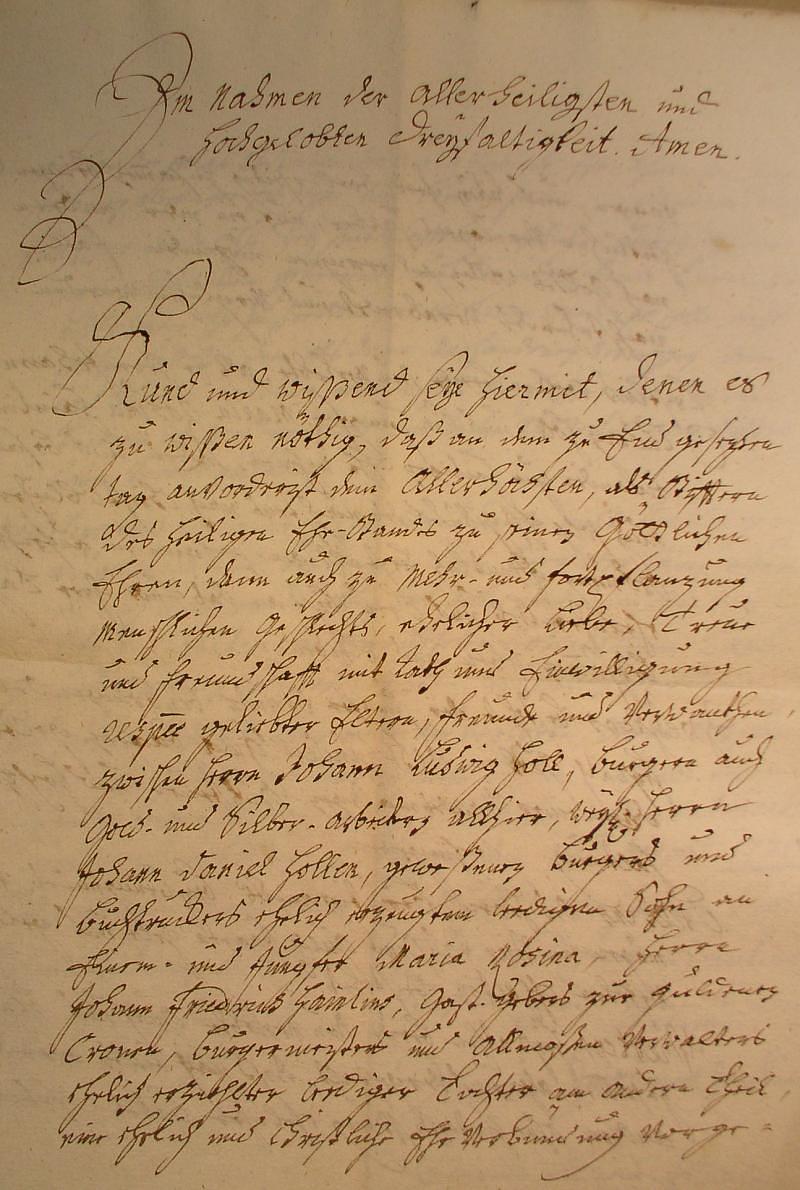 Im Nahmen der allerheiligsten und
Hochgelobten Dreyfaltigkeit. Amen.
Kund und wißend seye hiermit, denen es
zu wißen nöthig, daß an dem zu End gesezten
tag anvordrist dem Allerhöchsten, als Stifftern
des heiligen Ehe-Standes zu seinen Göttlichen
Ehren, dann auch zu Mehr- und fortpflanzung
Menschlichen Geschlechts, ehelicher Liebe, Treue
und freundschafft mit Rath und Einwilligung
respec geliebter Eltern, freunde und Verwanthen
zwischen Herrn Johann Ludwig Holl, burgern auch
Gold- und Silber-arbeitern allhier, weyl. Herrn
Johann Daniel Hollen, geweßenen burgers und
buchtruckers ehelich erzeugten ledigen Sohn an
Einem- und Jungfer Maria Rosina, Herrn
Johann Friedrich Hainlins, Gast-Gebers zur guldenen
Cronen, burgermeisters und Allmoßen Verwalters
ehelich erziehlter lediger Tochter am andern Theil,
eine ehelich und Christliche Ehe Verbündnung vorge=